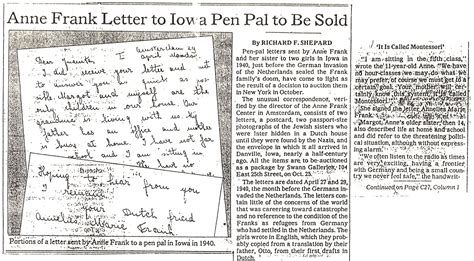 Anne Frank Letter to Iowa Pen Pal to Be Sold
Amsterdam
april
Dear Juanita,
I did receive your letter and want
to answer you as quick as pos-
sible. Margot and myself are the
children in our house. Our
grandmother is living with us.
has an office and mother
at home. I
from
school and I am
Hoping to hear from you
your Dutch friend
Annelies Marie
Frank
Portions of a letter sent by Anne Frank to a pen pal in Iowa in 1940.
By RICHARD F. SHEPARD
Pen-pal letters sent by Anne Frank
and her sister to two girls in Iowa in
1940, just before the German invasion
of the Netherlands sealed the Frank
family's doom, have come to light as
the result of a decision to auction them
in New York in October.
The unusual correspondence, veri-
fied by the director of the Anne Frank
Center in Amsterdam, consists of two
letters, a postcard, two passport-size
photographs of the Jewish sisters who
were later hidden in a Dutch house
until they were found by the Nazis, and
the envelope in which it all arrived in
Danville, Iowa, nearly a half-century
ago. All the items are to be auctioned
as a package by Swann Galleries, 104
East 25th Street, on Oct. 25.
The letters are dated April 27 and 29,
1940, the month before the Germans in-
vaded the Netherlands. The letters con-
tain little of the concerns of the world
that was careering toward catastrophe
and no reference to the condition of the
Franks as refugees from Germany
who had settled in the Netherlands. The
girls wrote in English, which they prob-
ably copied from a translation by their
father, Otto, from their first drafts in
Dutch.
'It Is Called Montessori'
"I am sitting in the fifth class,"
wrote the 11-year-old Anne. "We have
no hour-classes we may do what we
may prefer, of course we must get to a
certain goal. Your mother will cer-
tainly know this system, it is called
Montessori."
She signed the letter Annelies Marie
Frank.
Margot, Anne's older sister,
also described life at home and school
and did refer to the threatening politi-
cal situation, although without express-
ing alarm.
"We often listen to the radio as times
are very exciting, having a frontier
with Germany and being a small coun-
try we never feel safe," the handwrit-
Continued on Page C27, Column 1